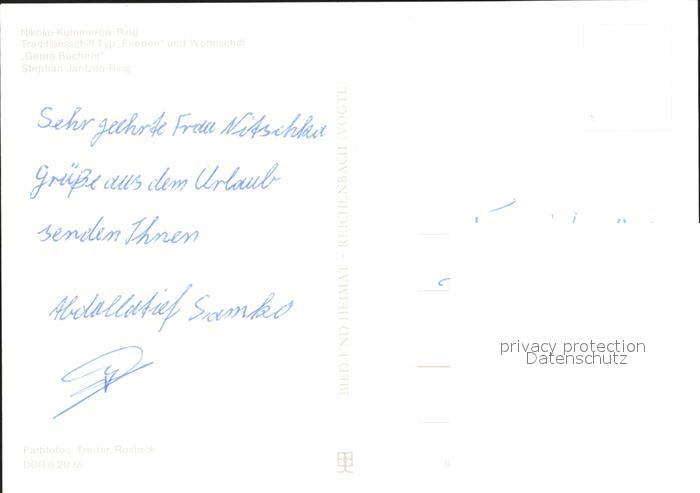 Nikolai-Kummerow-Ring
Traditionsschiff Typ „Frieden" und Wohnschiff
„Georg Büchner"
Stephan-Jantzen-Ring
Sehr geehrte Frau Nitschka
Grüße aus dem Urlaub
senden Ihnen
Abdallatief Samko
Farbfotos: Treder, Rostock
DDR 0,20 M
BILD UND HEIMAT · REICHENBACH (VOGTL)
privacy protection
Datenschutz